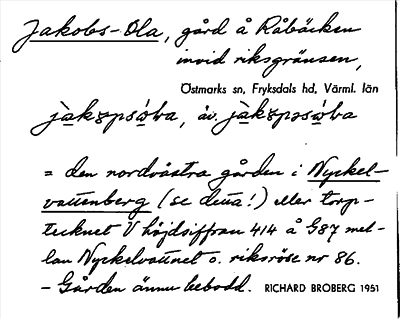 Jakobs-Ola, gård å Råbäcken
invid riksgränsen,
Östmarks sn, Fryksdals hd, Värml. län
, äv.
= den nordvästra gården i Nyckel-
vattenberg (se detta!) eller torp-
tecknet V höjdsiffran 414 å G87 mel-
lan Nyckelvattnet o. riksröse nr 86.
- Gården ännu bebodd. RICHARD BROBERG 1951